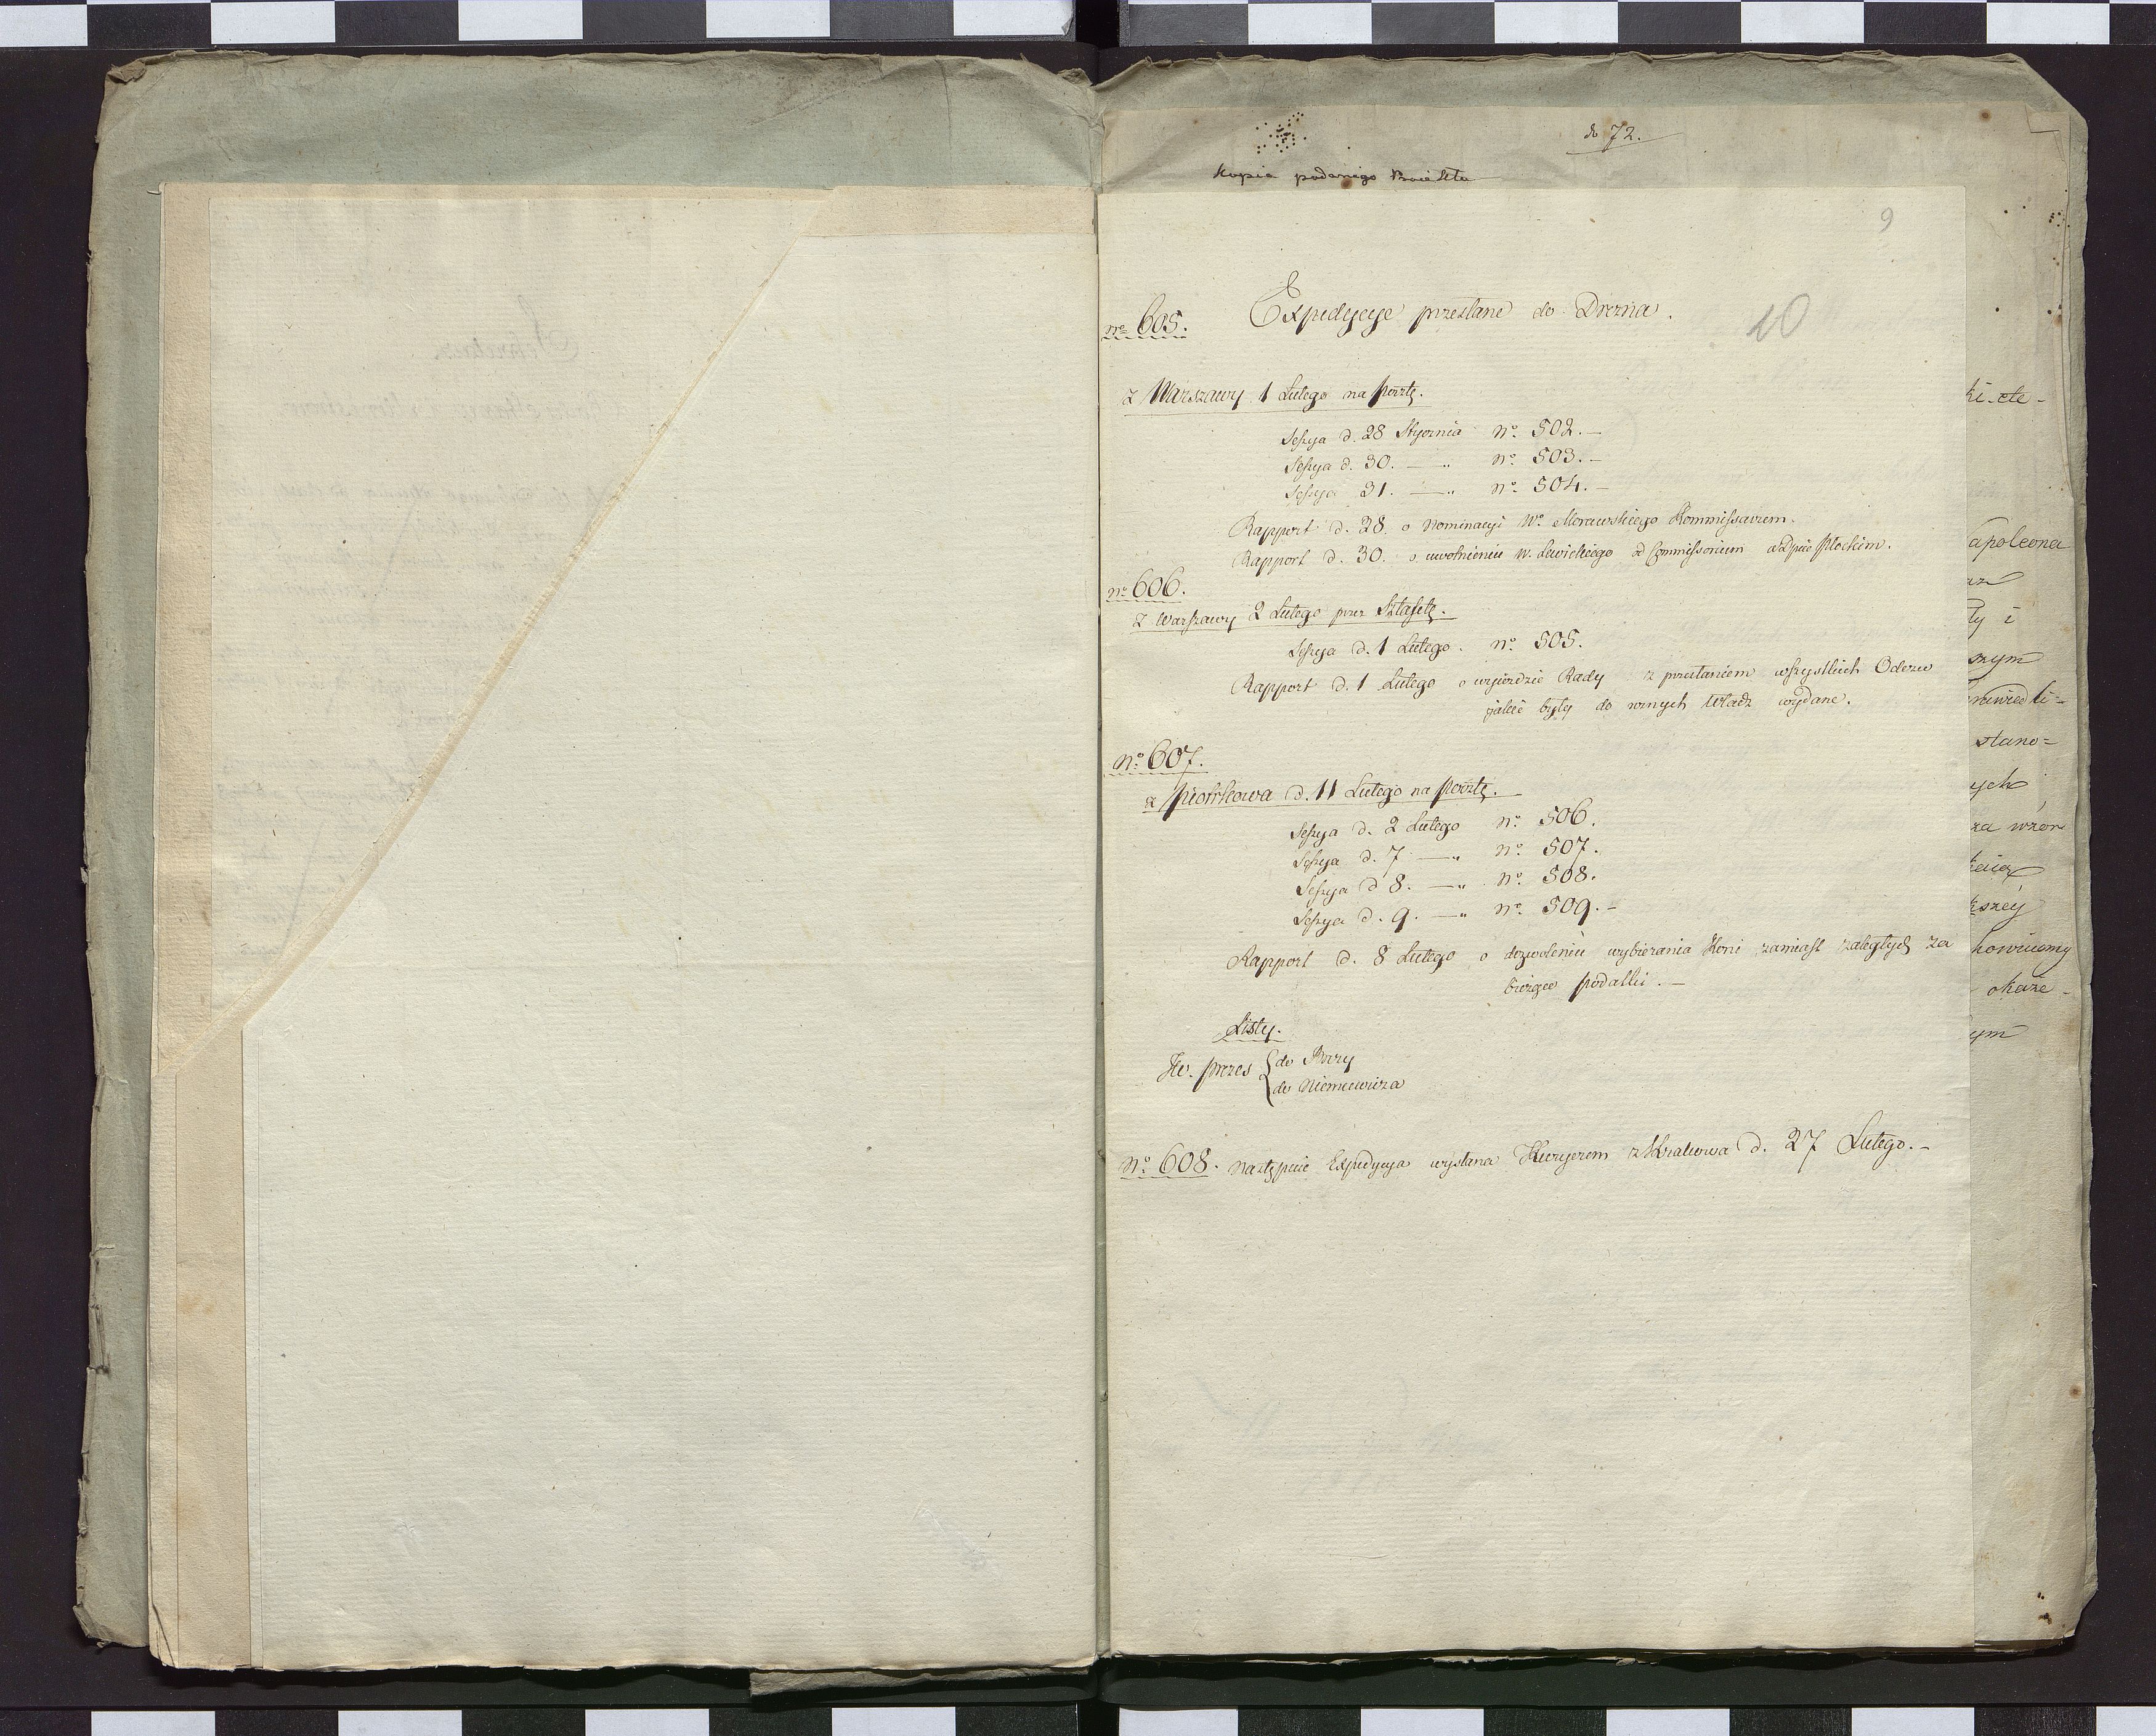 do 72.
Kopia podanego
9
Expedycye przesłane do Drezna.
no 605.
20
z Warszawy 1 Lutego na pocztę.
Sessya d. 28 Stycznia No. 502.—
Sessya d. 30. —„ No. 503.—
Sessya 31. —„ No. 504.—
Rapport d. 28. o Nominacyi Wo. Morawskiego Kommissarzem.
Rapport d. 30. o uwolnieniu W. Lewickiego od Commissorium w Dpcie Płockim.
no 606.
Z Warszawy 2 Lutego przez Sztafetę.
Sessya d. 1 Lutego. No. 505.
Rapport d. 1 Lutego o wyieździe Rady z przesłaniem wszystkich Odezw
jakie były do rożnych Władz wydane.
No. 607.
z Piotrkowa d. 11 Lutego na pocztę.—
Sessya d. 2 Lutego No. 506.
Sessya d. 7 —„ No. 507.
Sessya d 8. —„ No. 508.
Sessya d. 9. —„ No. 509.—
Rapport d. 8 Lutego o dozwoleniu wybierania Koni zamiast zaległych za
bieżące podatki.—
Listy.
prezes do Brezy
do Niemcewicza
No. 608. następnie Expedycya wysłana Kuryerem z Krakowa d. 27 Lutego.—
ki-ete-
apoleona
ły i
szym
rawiedli=
stano=
ych
za wzor
kszey
howuiemy
okaze-
ym